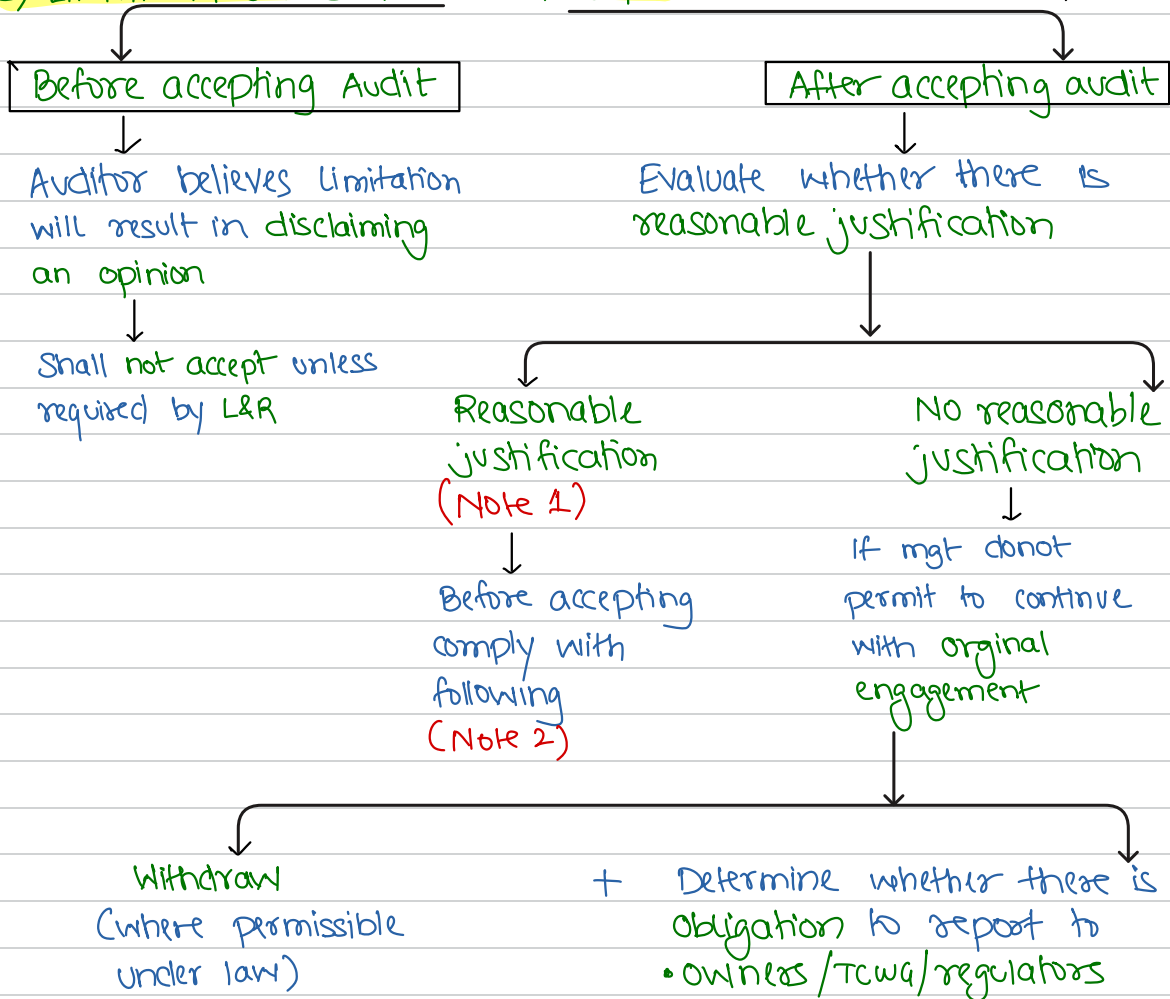 Before accepting Audit
After accepting audit
Auditor believes limitation
will result in disclaiming
an opinion
Shall not accept unless
required by L&R
Evaluate whether there is
reasonable justification
Reasonable
justification
(Note 1)
Before accepting
comply with
following
(Note 2)
No reasonable
justification
If mgt donot
permit to continue
with orginal
engagement
Withdraw
(where permissible
under law)
+ Determine whether there is
obligation to report to
• owners/TCWG/regulators